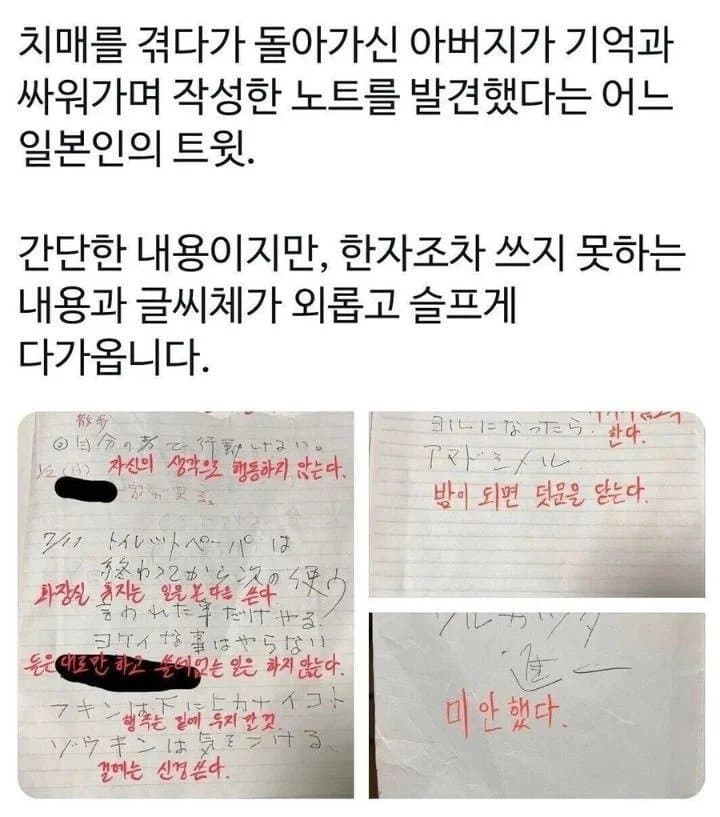 치매를 겪다가 돌아가신 아버지가 기억과
싸워가며 작성한 노트를 발견했다는 어느
일본인의 트윗.
간단한 내용이지만, 한자조차 쓰지 못하는
내용과 글씨체가 외롭고 슬프게
다가옵니다.
散歩
自分の考で行動しない。
자신의 생각으로 행동하지 않는다.
7/17 トイレットペーパは
終わってから次の使ウ
화장실 휴지는 일을 본 다음 쓴다
言われた事だけやる.
ヨケイな事はやらない
듣은 대로만 하고 쓸데없는 일은 하지 않는다.
フキンは下にヒカナイコト
행주는 밑에 두지 말 것.
ゾウキンは気をつける、
걸레는 신경쓴다.
ヨルになったら.
한다.
アマドシメル
밤이 되면 덧문을 닫는다.
ワルカッタ
進一
미안했다.